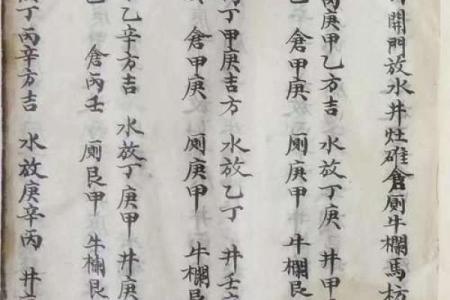 開門放水井灶碓倉厠牛欄馬
庚甲乙方吉 水放丁庚 井甲
倉甲庚 厠庚甲 牛欄艮
丁甲庚吉方 水放乙丁 井壬
倉甲庚 厠庚甲 牛欄艮
乙辛方吉 水放丁庚甲 井庚
倉丙壬 厠艮甲 牛欄艮
丁丙辛方吉 水放庚辛丙 井